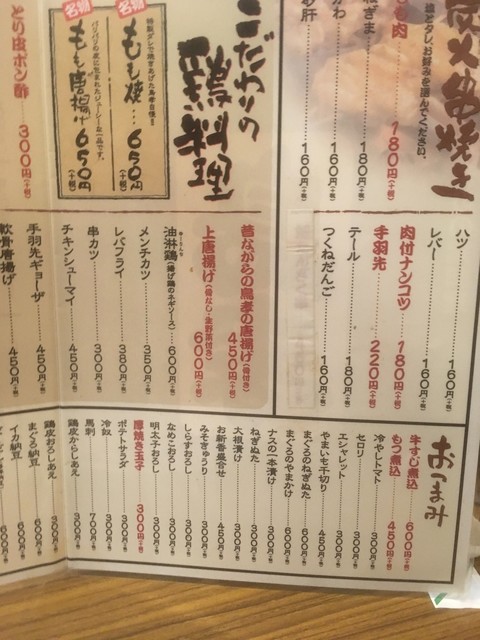 炭火串焼き
塩とタレ、お好みを選んでください。
もも肉 180円(+税)
ねぎま 180円(+税)
かわ 160円(+税)
肝 160円(+税)
ハツ 160円(+税)
レバー 160円(+税)
肉付ナンコツ 180円(+税)
手羽先 220円(+税)
テール 180円(+税)
つくねだんご 160円(+税)
こだわりの
鶏料理
名物
もも焼… 650円(+税)
名物
パリパリの皮に包まれたジューシーな一品です。
もも唐揚げ 650円(+税)
とり皮ポン酢 300円(+税)
昔ながらの鳥孝の唐揚げ(骨付き) 450円(+税)
上唐揚げ(骨なし・生野菜付き) 600円(+税)
油淋鶏(揚げ鶏のネギソース) 600円(+税)
メンチカツ 350円(+税)
レバフライ 350円(+税)
串カツ 300円(+税)
チキンシューマイ 450円(+税)
手羽先ギョーザ 450円(+税)
軟骨唐揚げ 450円(+税)
おつまみ
牛すじ煮込 600円(+税)
もつ煮込 450円(+税)
冷やしトマト 300円(+税)
セロリ 300円(+税)
エシャレット 300円(+税)
やまいも千切り 450円(+税)
まぐろのねぎぬた 600円(+税)
まぐろのやまかけ 600円(+税)
ナスの一本漬け 300円(+税)
ねぎぬた 300円(+税)
大根漬け 300円(+税)
お新香盛合せ 450円(+税)
みそきゅうり 300円(+税)
しらすおろし 300円(+税)
なめこおろし 300円(+税)
明太子おろし 300円(+税)
厚焼き玉子 300円(+税)
ポテトサラダ 300円(+税)
冷奴 300円(+税)
馬刺 700円(+税)
鶏皮からしあえ 300円(+税)
鶏皮おろしあえ 300円(+税)
まぐろ納豆 600円(+税)
イカ納豆 600円(+税)
600円(+税)